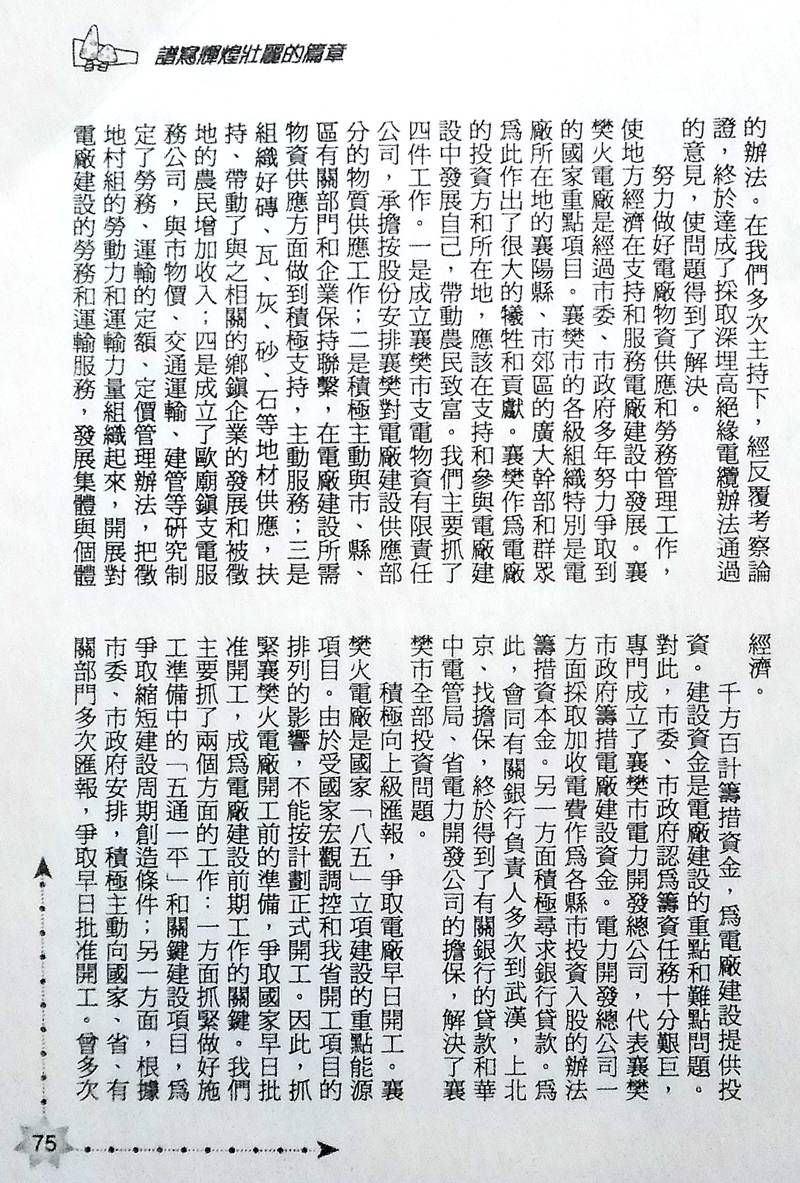 譜寫輝煌壯麗的篇章
的辦法。在我們多次主持下，經反覆考察論
證，終於達成了採取深埋高絕緣電纜辦法通過
的意見，使問題得到了解決。
努力做好電廠物資供應和勞務管理工作，
使地方經濟在支持和服務電廠建設中發展。襄
樊火電廠是經過市委、市政府多年努力爭取到
的國家重點項目。襄樊市的各級組織特別是電
廠所在地的襄陽縣、市郊區的廣大幹部和群眾
爲此作出了很大的犧牲和貢獻。襄樊作爲電廠
的投資方和所在地，應該在支持和參與電廠建
設中發展自己，帶動農民致富。我們主要抓了
四件工作。一是成立襄樊市支電物資有限責任
公司，承擔按股份安排襄樊對電廠建設供應部
分的物質供應工作；二是積極主動與市、縣、
區有關部門和企業保持聯繫，在電廠建設所需
物資供應方面做到積極支持，主動服務；三是
組織好磚、瓦、灰、砂、石等地材供應，扶
持、帶動了與之相關的鄉鎮企業的發展和被徵
地的農民增加收入；四是成立了歐廟鎮支電服
務公司，與市物價、交通運輸、建管等研究制
定了勞務、運輸的定額、定價管理辦法，把徵
地村組的勞動力和運輸力量組織起來，開展對
電廠建設的勞務和運輸服務，發展集體與個體
經濟。
千方百計籌措資金，爲電廠建設提供投
資。建設資金是電廠建設的重點和難點問題。
對此，市委、市政府認爲籌資任務十分艱巨，
專門成立了襄樊市電力開發總公司，代表襄樊
市政府籌措電廠建設資金。電力開發總公司一
方面採取加收電費作爲各縣市投資入股的辦法
籌措資本金。另一方面積極尋求銀行貸款。爲
此，會同有關銀行負責人多次到武漢，上北
京、找擔保，終於得到了有關銀行的貸款和華
中電管局、省電力開發公司的擔保，解決了襄
樊市全部投資問題。
積極向上級匯報，爭取電廠早日開工。襄
樊火電廠是國家「八五」立項建設的重點能源
項目。由於受國家宏觀調控和我省開工項目的
排列的影響，不能按計劃正式開工。因此，抓
緊襄樊火電廠開工前的準備，爭取國家早日批
准開工，成爲電廠建設前期工作的關鍵。我們
主要抓了兩個方面的工作：一方面抓緊做好施
工準備中的「五通一平」和關鍵建設項目，爲
爭取縮短建設周期創造條件；另一方面，根據
市委、市政府安排，積極主動向國家、省、有
關部門多次匯報，爭取早日批准開工。曾多次
75